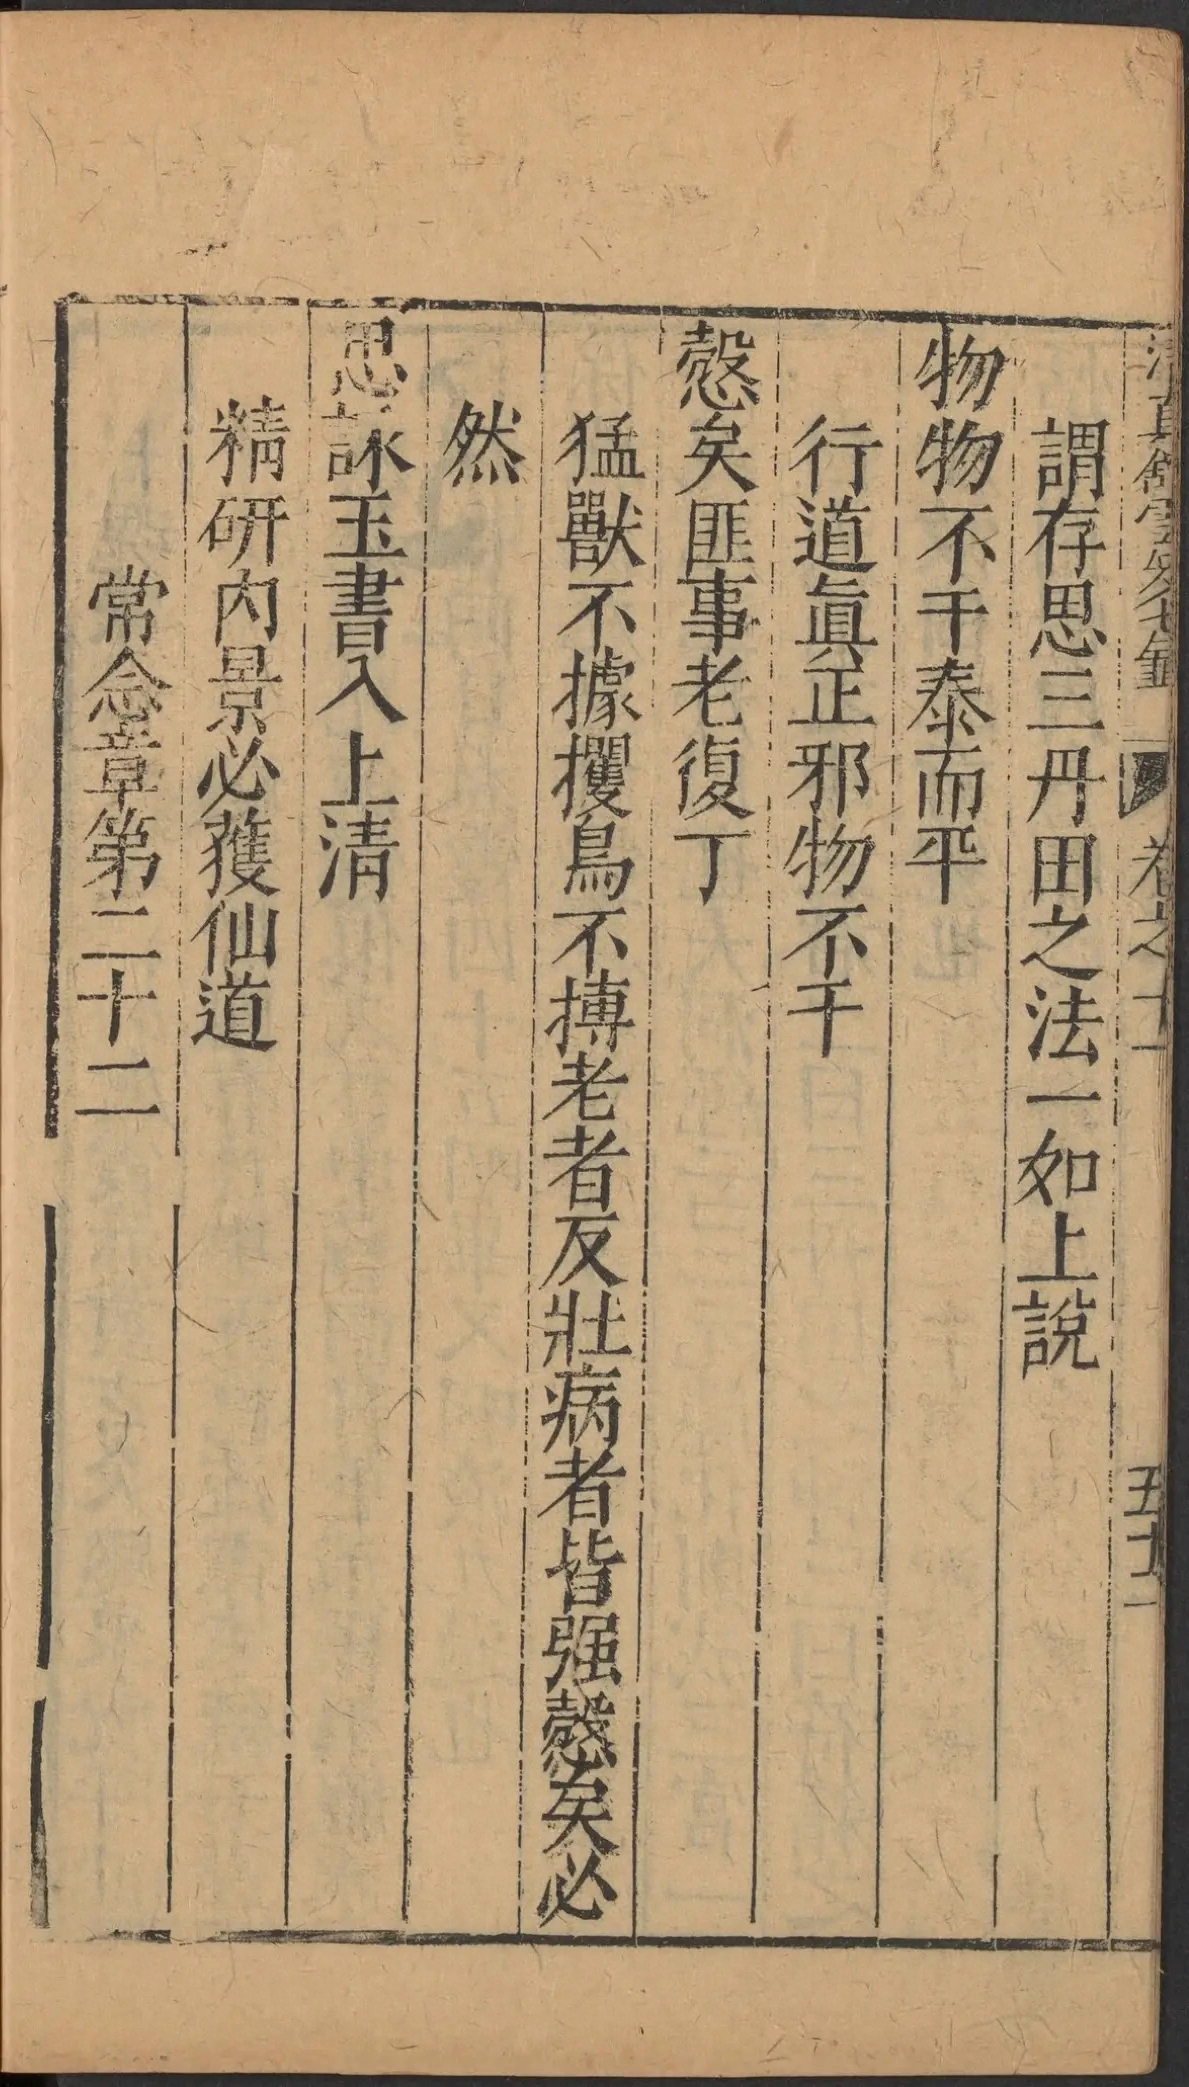 清真館雲笈七籤 卷之十一 五十二
謂存思三丹田之法一如上說
物物不干泰而平
行道眞正邪物不干
慤矣匪事老復丁
猛獸不據攫鳥不搏老者反壯病者皆强慤矣必
然
思詠玉書入上清
精研內景必獲仙道
常念章第二十二